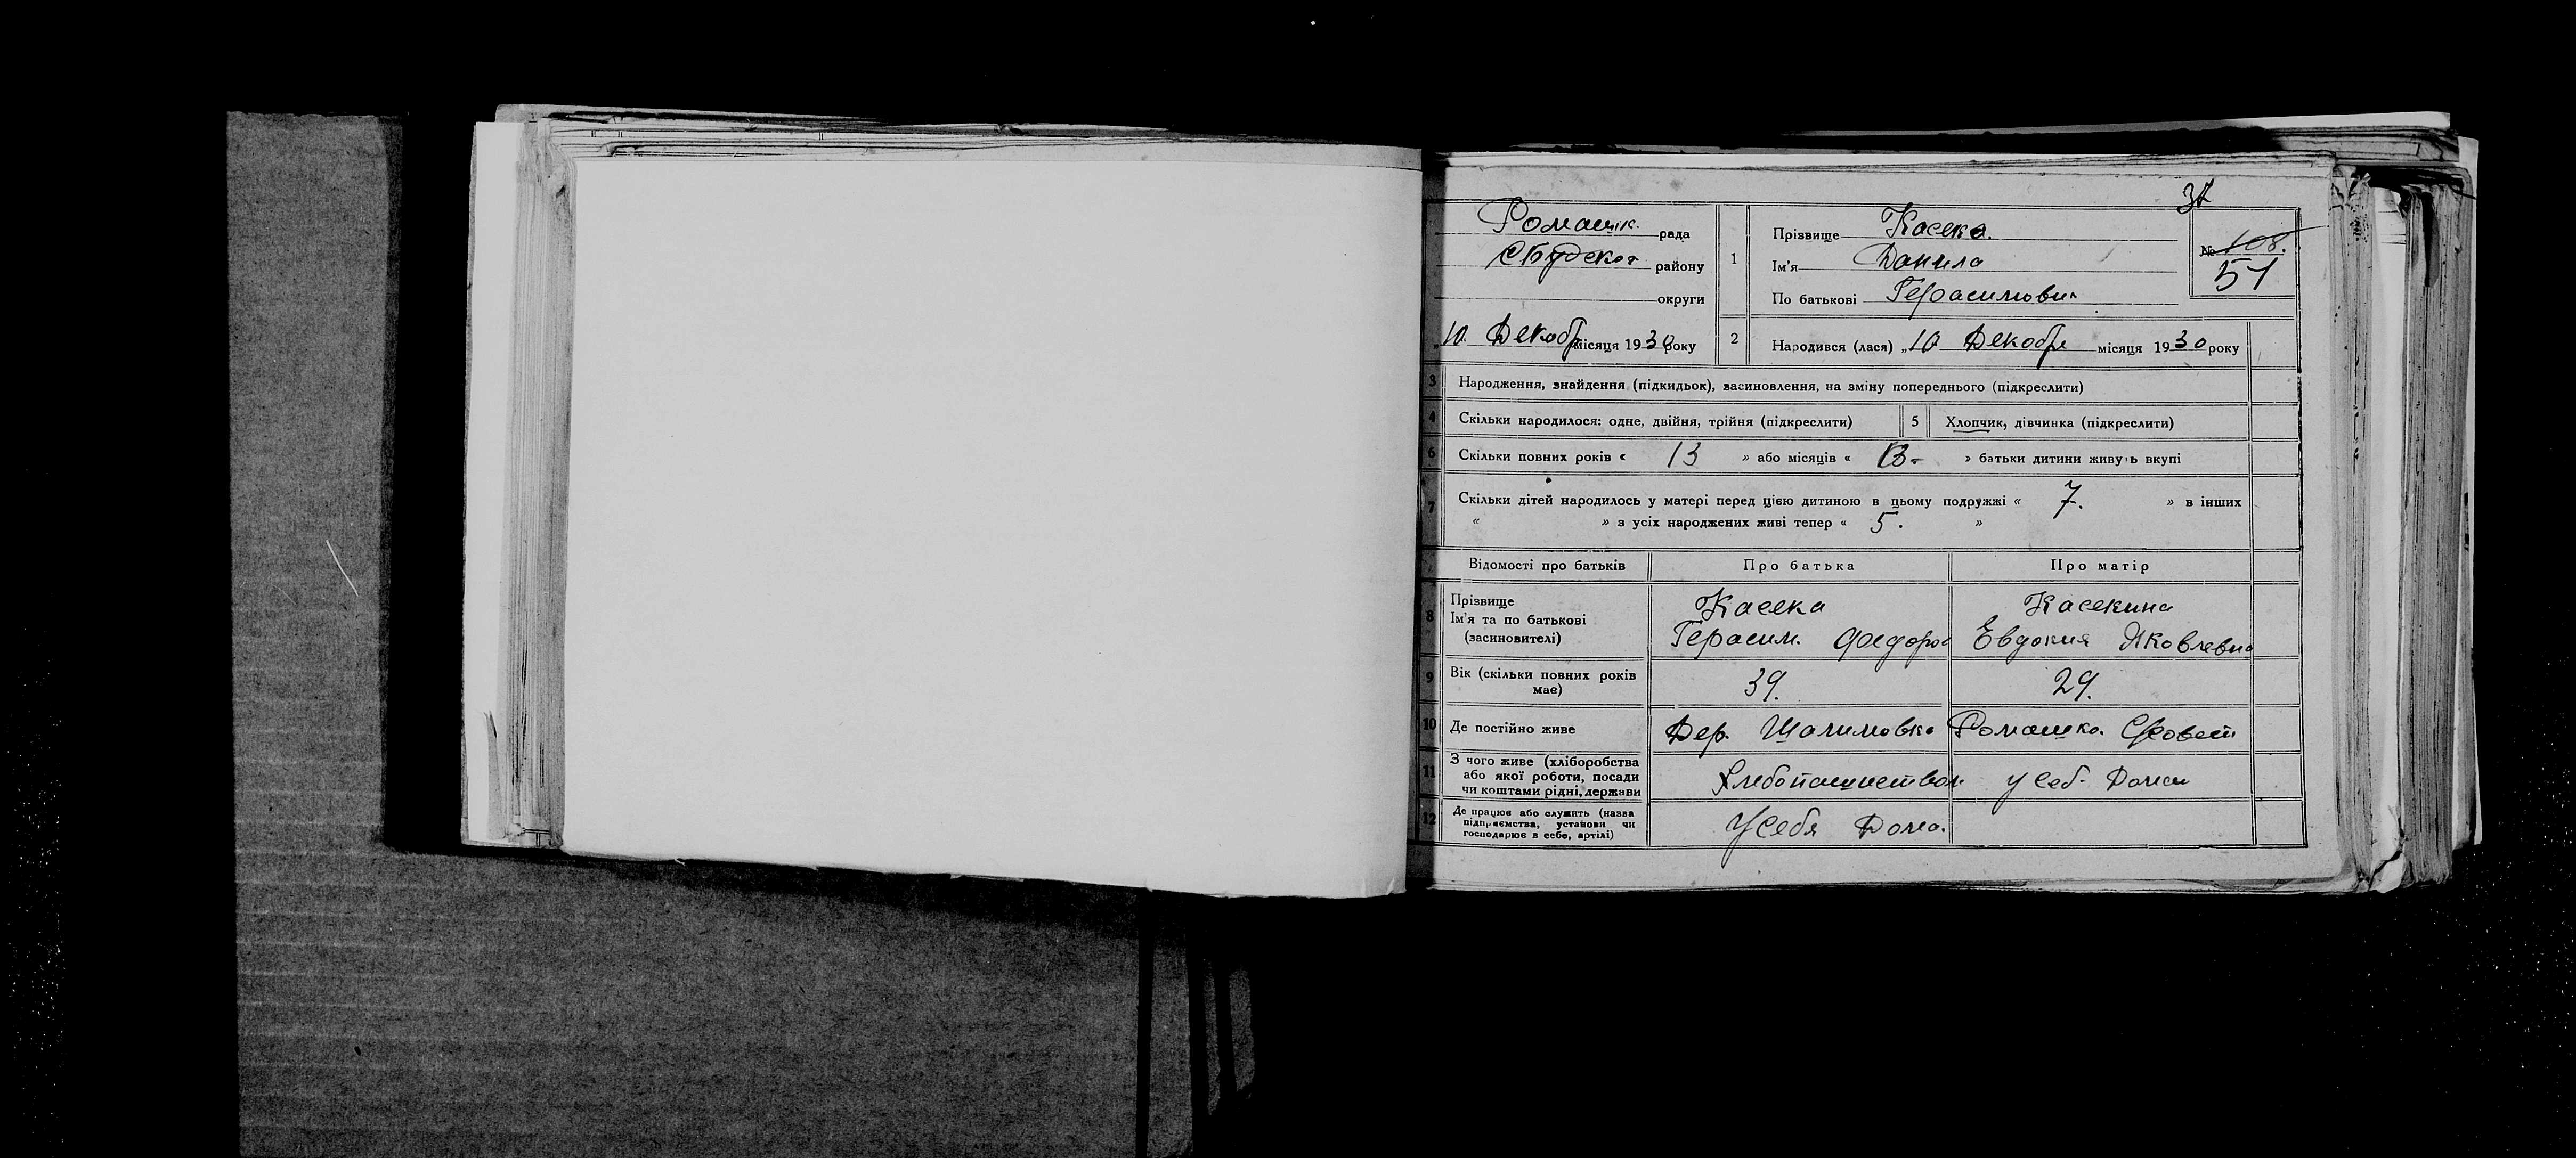 37
Ромашк. рада
СБудског району
округи
10 Декабр місяця 1930 року
1
Прізвище Касека.
Ім'я Данила
По батькові Герасимович
№ 108.
51
2
Народився (лася) „10 Декабре місяця 1930 року
3 Народження, знайдення (підкидьок), засиновлення, на зміну попереднього (підкреслити)
4 Скільки народилося: одне, двійня, трійня (підкреслити) 5 Хлопчик, дівчинка (підкреслити)
6 Скільки повних років « 13 » або місяців « 13- » батьки дитини живуть вкупі
7 Скільки дітей народилось у матері перед цією дитиною в цьому подружжі « 7. » в інших
« » з усіх народжених живі тепер « 5. »
Відомості про батьків Про батька Про матір
8 Прізвище
Ім'я та по батькові
(засиновителі)
Касека
Герасим. Федоров
Касекина
Евдокия Яковлевна
9 Вік (скільки повних років
має)
39.
29.
10 Де постійно живе Дер. Шалимовка Ромашка.
11 З чого живе (хліборобства
або якої роботи, посади
чи коштами рідні, держави
Хлебопашеством
у Себ. Дома
12 Де працює або служить (назва
підприємства, установи чи
господарює в себе, артілі)
У Себя Дома.